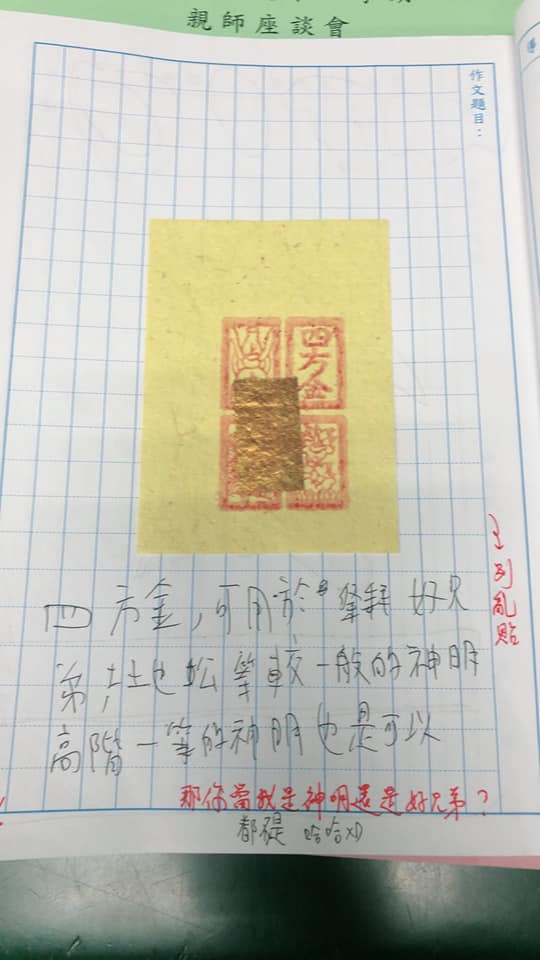 親師座談會
作文題目：
四方金
亂貼
四方金,可用於 好兄
弟,土地蚣等較一般的神明
高階一等的神明也是可以
那你當我是神明還是好兄弟？
都 哈哈XD